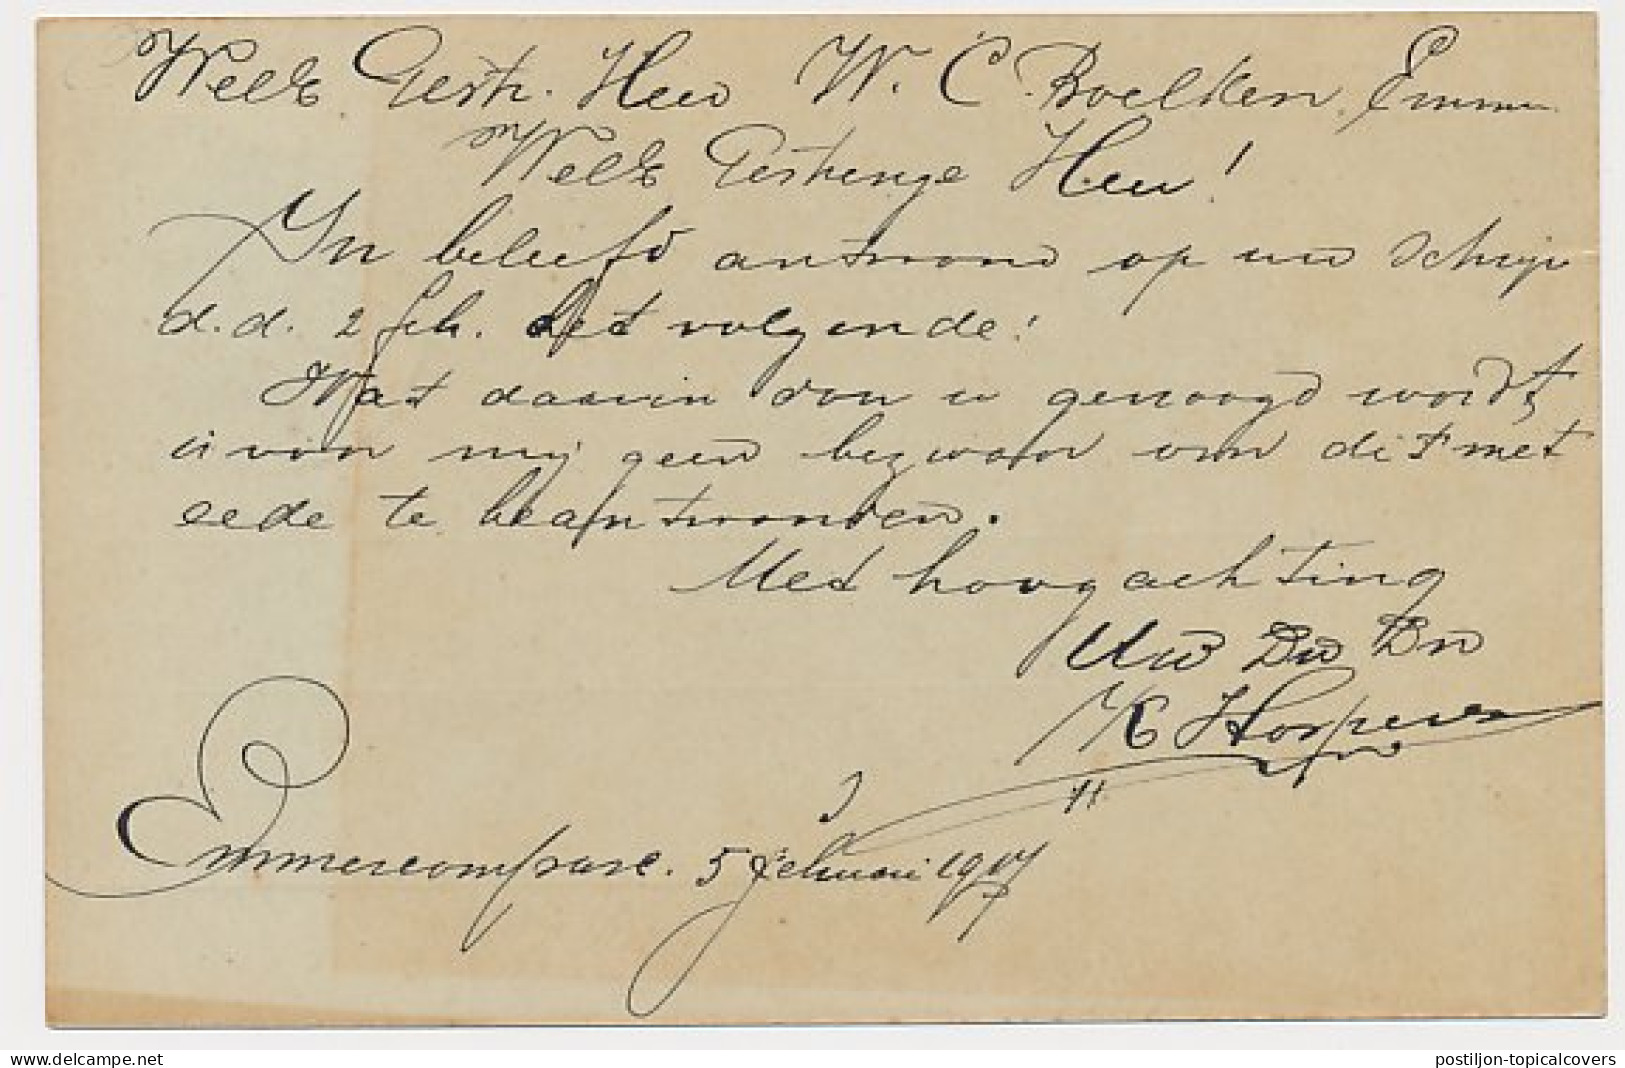 WelE. Gestr. Heer W. C. Boelken Emmen
WelE Gestrenge Heer!
In beleefd antwoord op uw schrijv
d.d. 2 feb. het volgende:
Wat daarin van u gevraagd wordt,
is van mij geen bezwaar om dit met
eede te beantwoorden.
Met hoogachting
Uw Dw Dn
K Horpers
Emmercompasc. 5 februari 1907
www.delcampe.net
postiljon-topicalcovers